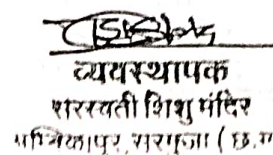 व्यवस्थापक
सरस्वती शिशु मंदिर
अम्बिकापुर, सरगुजा (छ.ग